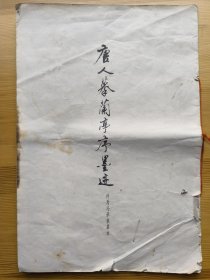 唐人摹蘭亭序墨迹